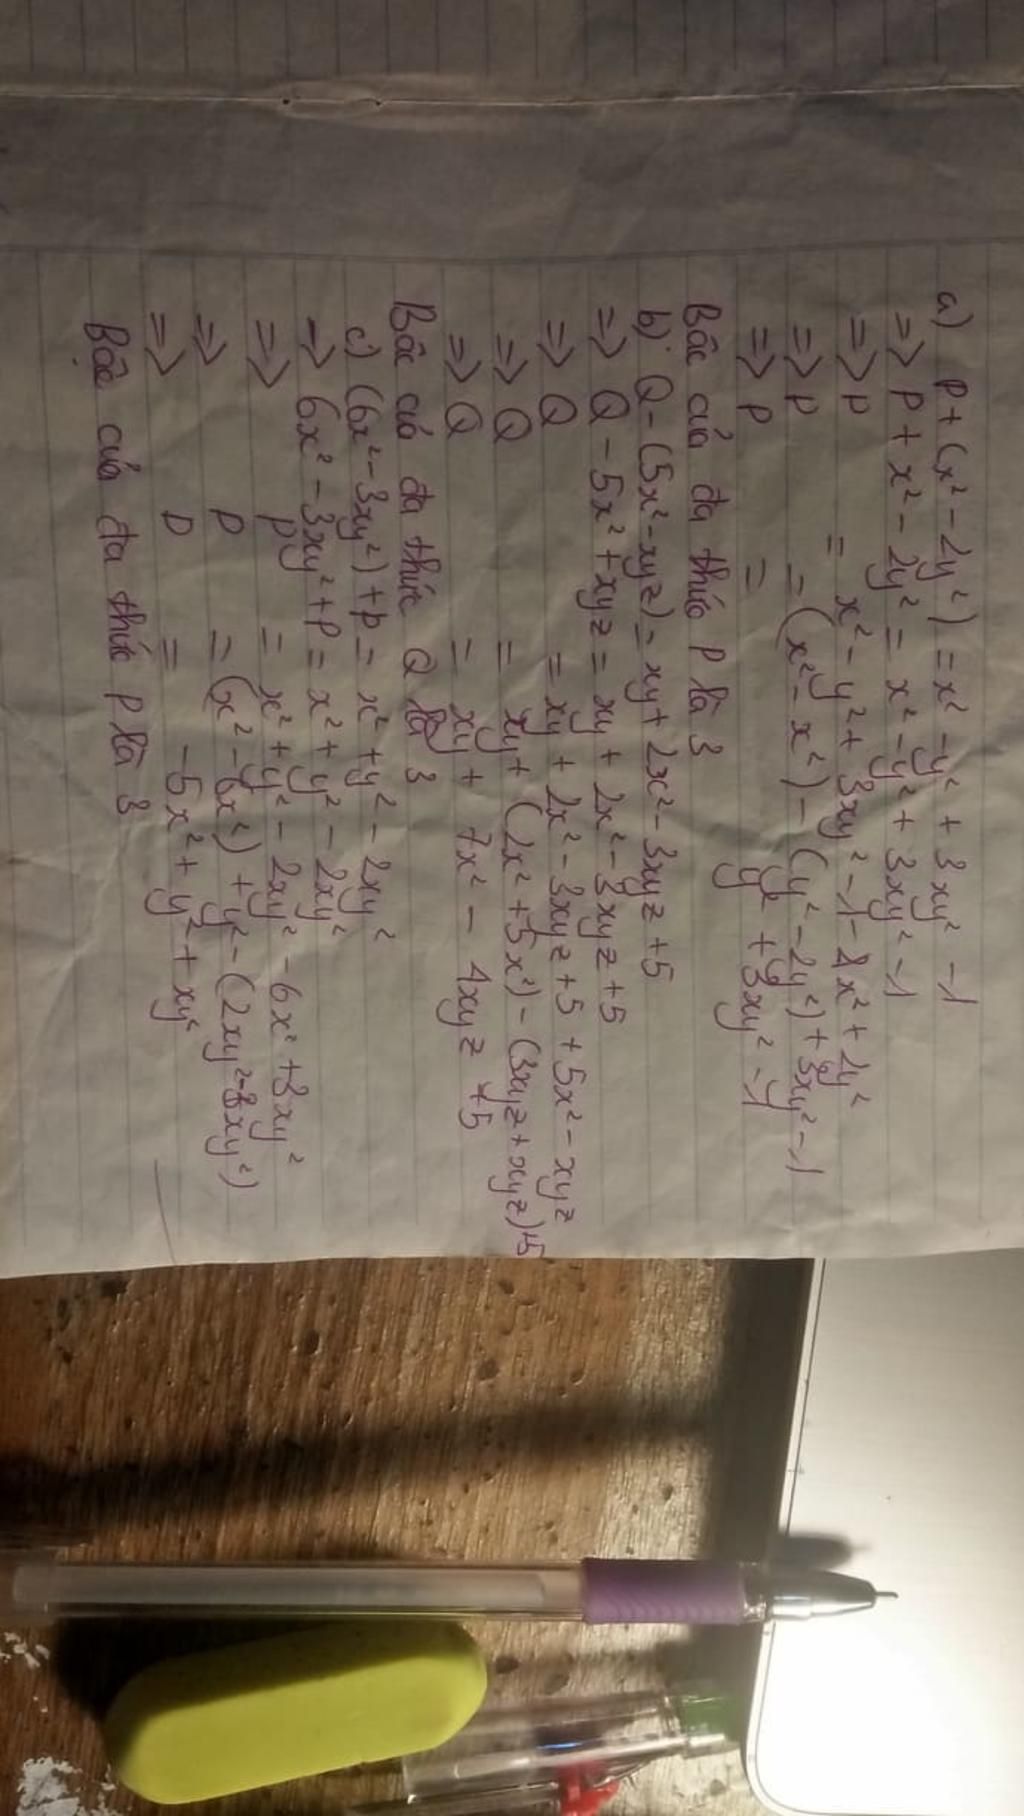 a) P + (x² - 2y²) = x² - y² + 3xy² - 1
=> P + x² - 2y² = x² - y² + 3xy² - 1
=> P = x² - y² + 3xy² - 1 - x² + 2y²
=> P = (x² - x²) - (y² - 2y²) + 3xy² - 1
=> P = y² + 3xy² - 1
Bậc của đa thức P là 3
b) Q - (5x² - xyz) = xy + 2x² - 3xyz + 5
=> Q - 5x² + xyz = xy + 2x² - 3xyz + 5
=> Q = xy + 2x² - 3xyz + 5 + 5x² - xyz
=> Q = xy + (2x² + 5x²) - (3xyz + xyz) + 5
=> Q = xy + 7x² - 4xyz + 5
Bậc của đa thức Q là 3
c) (6x² - 3xy²) + P = x² + y² - 2xy²
=> 6x² - 3xy² + P = x² + y² - 2xy²
=> P = x² + y² - 2xy² - 6x² + 3xy²
=> P = (x² - 6x²) + y² - (2xy² - 3xy²)
=> P = -5x² + y² + xy²
Bậc của đa thức P là 3